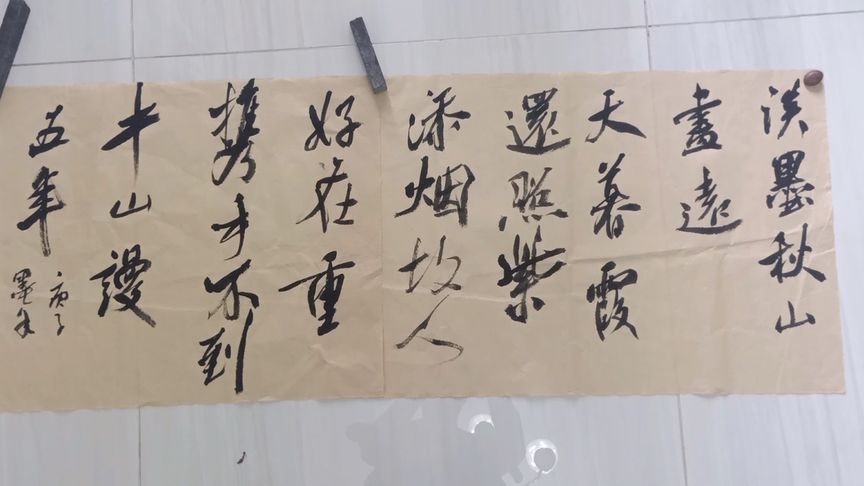 淡墨秋山
畫遠
天暮霞
還照紫
添烟故人
好在重
携手不到
平山謾
五年
庚子
墨